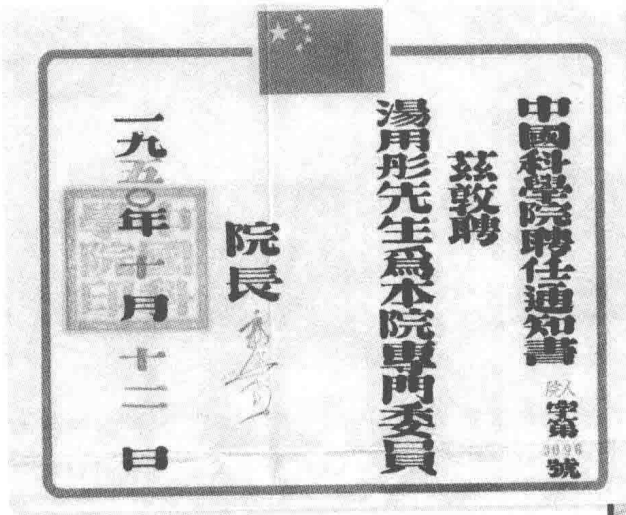 中國科學院聘任通知書
院人字第3696號
茲敦聘
湯用彤先生爲本院專門委員
院長
一九五〇年十月十二日
中國科學院印